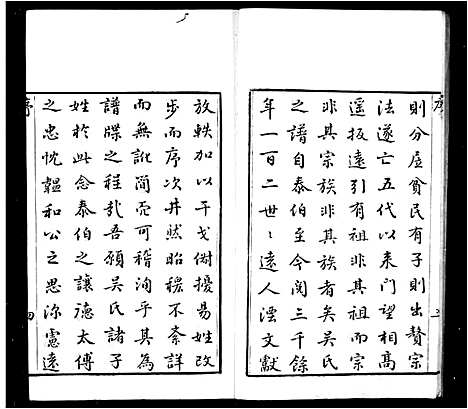 序
三
則分居貧民有子則出贅宗
法遂亡五代以来門望相高
遥扳遠引有祖非其祖而宗
非其宗族非其族者矣吴氏
之譜自泰伯至今閲三千餘
年一百二世〻遠人湮文獻
放軼加以干戈倎擾易姓改
步而序次井然昭穆不紊詳
而無訛簡而可稽洵乎其為
譜牒之程哉吾願吴氏諸子
姓於此念泰伯之讓德太傅
之忠忱韞和公之思深慮遠
序
四